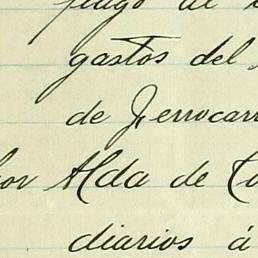 pago al
gastos del
de Ferrocarr
or Alda de
diarios á